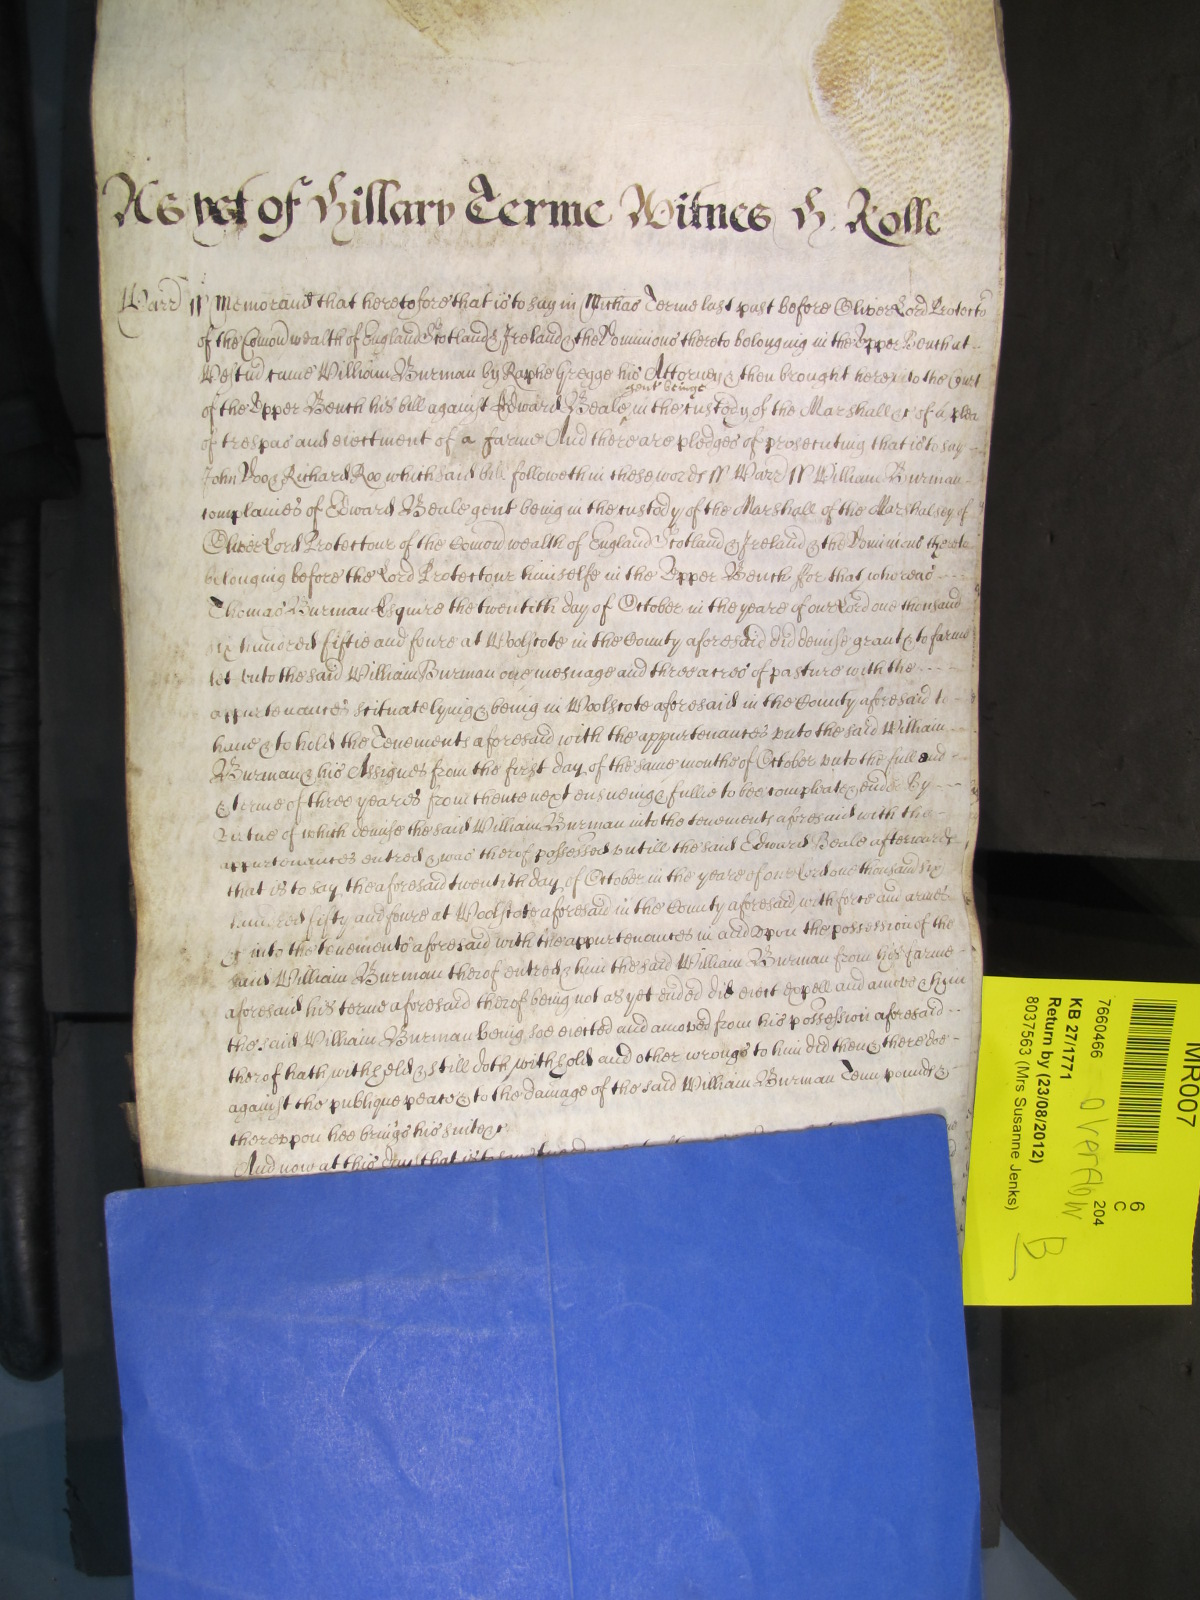 As yet of Hillary Terme Witnes H. Rolle
Warr ss Memorand that heretofore that is to say in Michas Terme last past before Oliver Lord Protector
of the Comon wealth of England Scotland & Ireland & the Dominions thereto belonging in the Upper Bench at
Westm came William Burman by Raphe Gregge his Attorney & then brought here into the Court
gent beinge
of the Upper Bench his bill against Edward Beale in the custody of the Marshall &c of a plea
of trespas and eiectment of a farme And there are pledges of prosecuting that is to say
John Doo & Richard Roo which said bill followeth in these words ss Warr ss William Burman
complaines of Edward Beale gent being in the custody of the Marshall of the Marshalsey of
Oliver Lord Protectour of the Comon wealth of England Scotland & Ireland & the Dominions thereto
belonging before the Lord Protectour himselfe in the Upper Bench ffor that whereas
Thomas Burman Esquire the twentith day of October in the yeare of our Lord one thousand
six hundred fiftie and foure at Woolscote in the County aforesaid did demise grant & to farme
let unto the said William Burman one mesuage and three acres of pasture with the
appurtenances scituate lying & being in Woolscote aforesaid in the County aforesaid to
have & to hold the Tenements aforesaid with the appurtenances unto the said William
Burman & his Assignes from the first day of the same monthe of October unto the full end
& terme of three yeares from thence next ensueing & fullie to bee compleat & ended By
vertue of which demise the said William Burman into the tenements aforesaid with the
appurtenances entred & was therof possessed untill the said Edward Beale afterwards
that is to say the aforesaid twentith day of October in the yeare of our Lord one thousand six
hundred fifty and foure at Woolscote aforesaid in the County aforesaid with force and armes
&c into the tenements aforesaid with the appurtenances in and upon the possession of the
said William Burman therof entred & him the said William Burman from his farme
aforesaid his terme aforesaid therof being not as yet ended did eiect expell and amove & him
the said William Burman being soe eiected and amoved from his possession aforesaid
therof hath withheld & still doth withhold and other wrongs to him did then & there doe
against the publique peace & to the damage of the said William Burman Tenn pounds &
thereupon hee brings his suite &c
And now at this day that is to say
MR007
6
C
204
7660466
KB 27/1771
Return by (23/08/2012)
8037563 (Mrs Susanne Jenks)
overflow
B